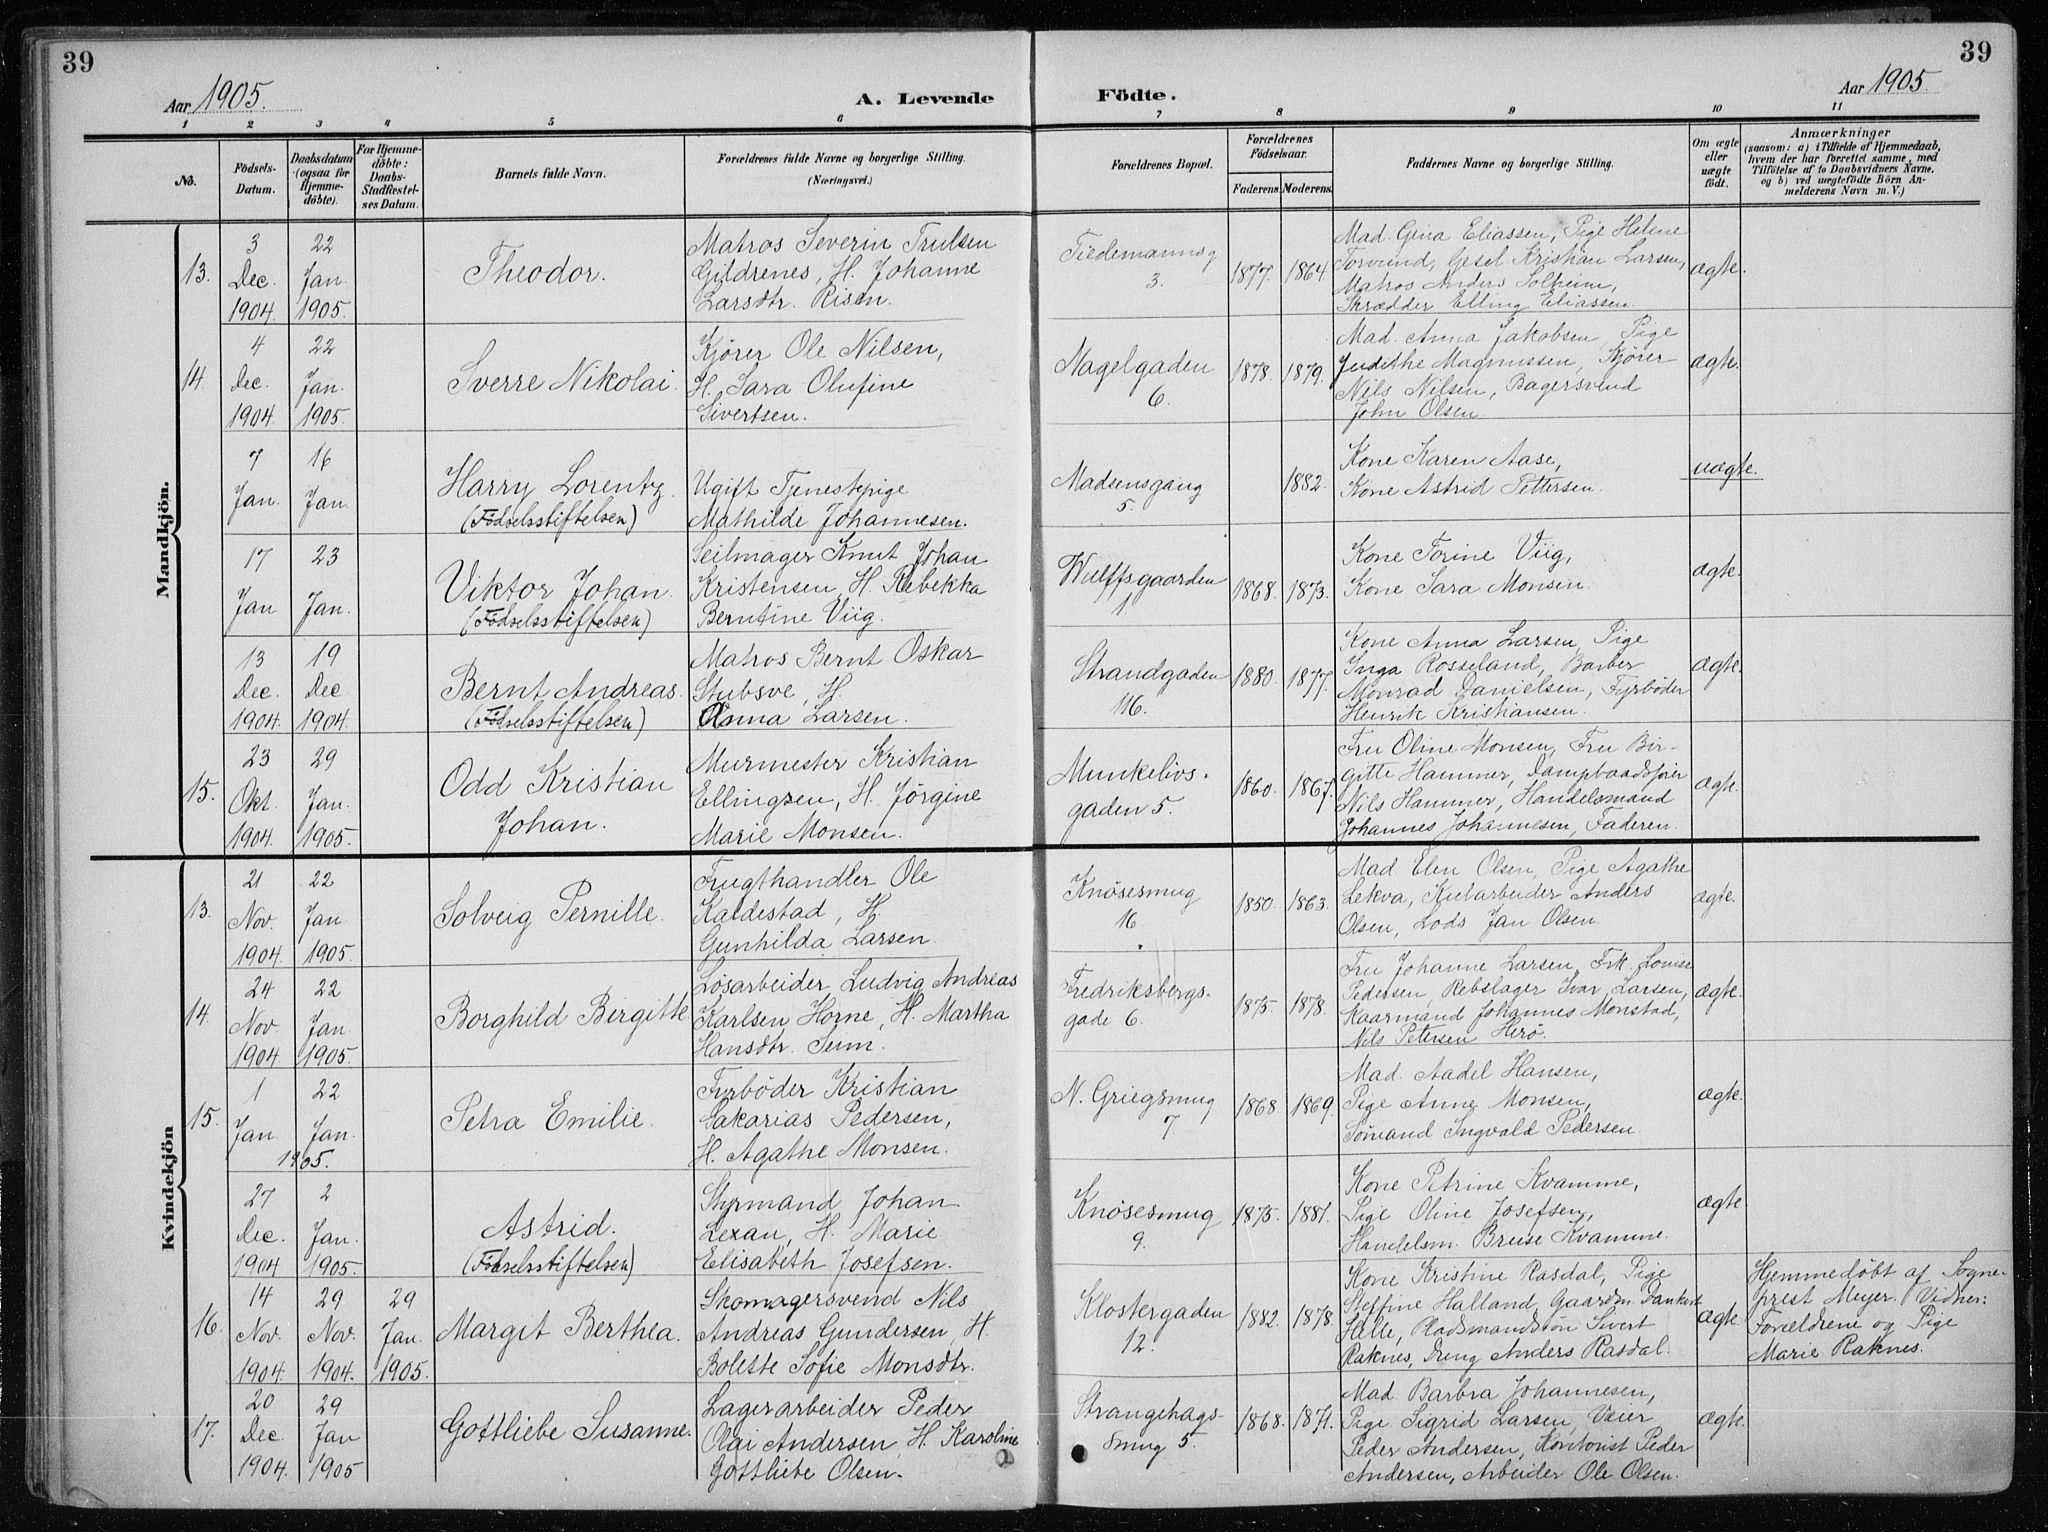 39
39
Aar 1905.
A. Levende
Födte.
Aar 1905.
1 2 3 4 5 6 7 8 9 10 11
No.
Födsels-
Datum.
Daabsdatum
(ogsaa for
Hjemme-
döbte).
For Hjemme-
döbte:
Daabs-
Stadfæstel-
ses Datum.
Barnets fulde Navn.
Forældrenes fulde Navne og borgerlige Stilling.
(Næringsvei.)
Forældrenes Bopæl.
Forældrenes
Födselsaar.
Faderens. Moderens.
Faddernes Navne og borgerlige Stilling.
Om ægte
eller
uægte
födt.
Anmærkninger
(saasom: a) i Tilfælde af Hjemmedaab,
hvem der har forrettet samme, med
Tilföielse af to Daabsvidners Navne,
og b) ved uægtefödte Börn An-
melderens Navn m. V.)
Mandkjön.
13.
3
Dec.
1904.
22
Jan.
1905.
Theodor.
Matros Severin Trulsen
Gildrenes, H. Johanne
Larsdtr. Risen.
Tiedemannsg
3.
1877. 1864.
Mad. Gina Eliassen, Pige Helene
Torvund, Gesel Kristian Larsen,
Matros Anders Solheim,
Skrædder Elling Eliassen.
ægte.
14.
4
Dec.
1904.
22
Jan.
1905.
Sverre Nikolai.
Kjører Ole Nilsen,
H. Sara Olufine
Sivertsen.
Nagelgaden
6.
1878. 1879.
Mad. Anna Jakobsen, Pige
Judithe Magnussen, Kjører
Nils Nilsen, Bagersvend
John Olsen.
ægte.
7
Jan.
16
Jan.
Harry Lorentz.
(Fødselsstiftelsen)
Ugift Tjenestepige
Mathilde Johannesen.
Madsensgang
5.
1882.
Kone Karen Aase,
Kone Astrid Pettersen.
uægte.
17
Jan
23
Jan.
Viktor Johan.
(Fødselsstiftelsen)
Seilmager Knut Johan
Kristensen, H. Rebekka
Berntine Viig.
Wulffsgaarden
1
1868. 1873.
Kone Torine Viig,
Kone Sara Monsen.
ægte.
13
Dec.
1904.
19
Dec
1904.
Bernt Andreas.
(Fødselsstiftelsen)
Matros Bernt Oskar
Stubsve, H.
Anna Larsen.
Strandgaden
116.
1880. 1877.
Kone Anna Larsen, Pige
Inga Rosseland, Barber
Monrad Danielsen, Fyrbøder
Henrik Kristiansen.
ægte.
15.
23
Okt.
1904.
29
Jan.
1905.
Odd Kristian
Johan.
Murmester Kristian
Ellingsen, H. Jørgine
Marie Monsen.
Munkelivs-
gaden 5.
1860. 1867.
Fru Oline Monsen, Fru Bir-
gitte Hammer, Dampbaadsfører
Nils Hammer, Handelsmand
Johannes Johannesen, Faderen.
ægte.
Kvindekjön
13.
21
Nov.
1904.
22
Jan.
1905.
Solveig Pernille.
Frugthandler Ole
Kaldestad, H.
Gunhilda Larsen.
Knøsesmug
16
1850. 1863.
Mad Elen Olsen, Pige Agathe
Lekva, Kularbeider Anders
Olsen, Lods Jan Olsen.
ægte.
14.
24
Nov.
1904
22
Jan
1905.
Borghild Birgitte.
Løsarbeider Ludvig Andreas
Karlsen Horne, H. Martha
Hansdtr. Seim.
Fredriksbergs-
gade 6.
1875. 1878.
Fru Johanne Larsen, Frk. Louise
Pedersen, Rebslager Ivar Larsen,
Kaarmand Johannes Monstad,
Nils Petersen Herø.
ægte.
15.
1
Jan
22
Jan.
1905.
Petra Emilie.
Fyrbøder Kristian
Sakarias Pedersen,
H. Agathe Monsen.
N. Griegsmug
7.
1868. 1869.
Mad. Aadel Hansen,
Pige Anne Monsen,
Sømand Ingvald Pedersen.
ægte.
27
Dec.
1904
2
Jan.
1905.
Astrid.
(Fødselsstiftelsen)
Styrmand Johan
Lexan, H. Marie
Elisabeth Josefsen.
Knøsesmug
9.
1875. 1881.
Kone Petrine Kvamme,
Pige Oline Josefsen,
Handelsm. Bruse Kvamme.
ægte.
16.
14
Nov.
1904
29
Nov.
1904.
29
Jan.
1905.
Margit Berthea.
Skomagersvend Nils
Andreas Gundersen, H.
Bolette Sofie Monsdtr.
Klostergaden
12.
1882. 1878.
Kone Kristine Rasdal, Pige
Steffine Halland, Gaardm. Dankert
Helle, Pladsmandssøn Sivert
Raknes, Dreng Anders Rasdal.
ægte.
Hjemmedøbt af Sogne-
prest Meyer. Vidner:
Forældrene og Pige
Marie Raknes.
17.
20
Dec.
1904.
29
Jan
1905
Gottliebe Susanne.
Lagerarbeider Peder
Olai Andersen, H. Karoline
Gottliebe Olsen.
Strangehags-
smug 5.
1868. 1871.
Mad. Barbra Johannesen,
Pige Sigrid Larsen, Veier
Peder Andersen, Kontorist Peder
Andersen, Arbeider Ole Olsen.
ægte.